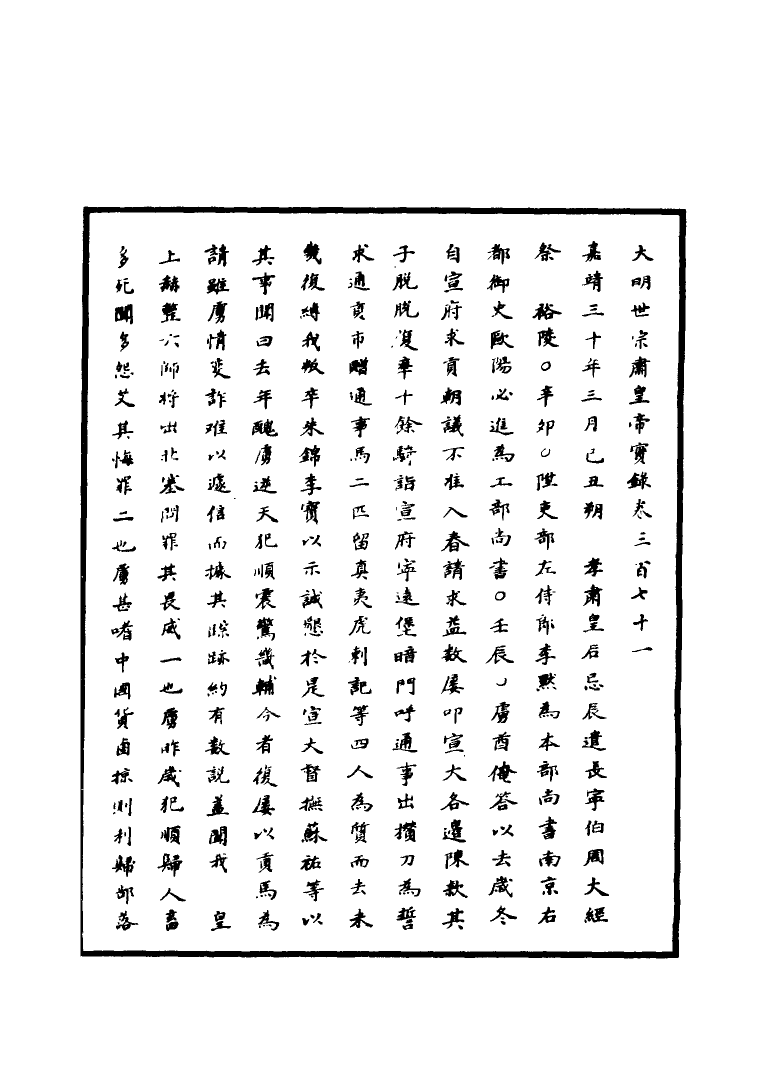 大明世宗肅皇帝實錄卷三百七十一
嘉靖三十年三月己丑朔　孝肅皇后忌辰遣長寧伯周大經
祭　裕陵○辛卯○陞吏部左侍郎李默為本部尚書南京右
都御史歐陽必進為工部尚書○壬辰○虜酋俺答以去歲冬
自宣府求貢朝議不准入春請求益数屡叩宣大各邊陳欵其
子脫脫復率十餘騎詣宣府寧遠堡暗門呼通事出攢刀為誓
求通貢市贈通事馬二匹留真夷虎剌記等四人為質而去未
幾復縛我叛卒朱錦李寶以示誠懇於是宣大督撫蘇祐等以
其事聞曰去年醜虜逆天犯順震驚畿輔今者復屡以貢馬為
請雖虜情変詐难以遽信而據其踪跡約有数説盖聞我　皇
上赫整六師将出北塞問罪其畏威一也虜昨歲犯順歸人畜
多死聞多怨艾其悔罪二也虜甚嗜中國貨鹵掠則利歸部落